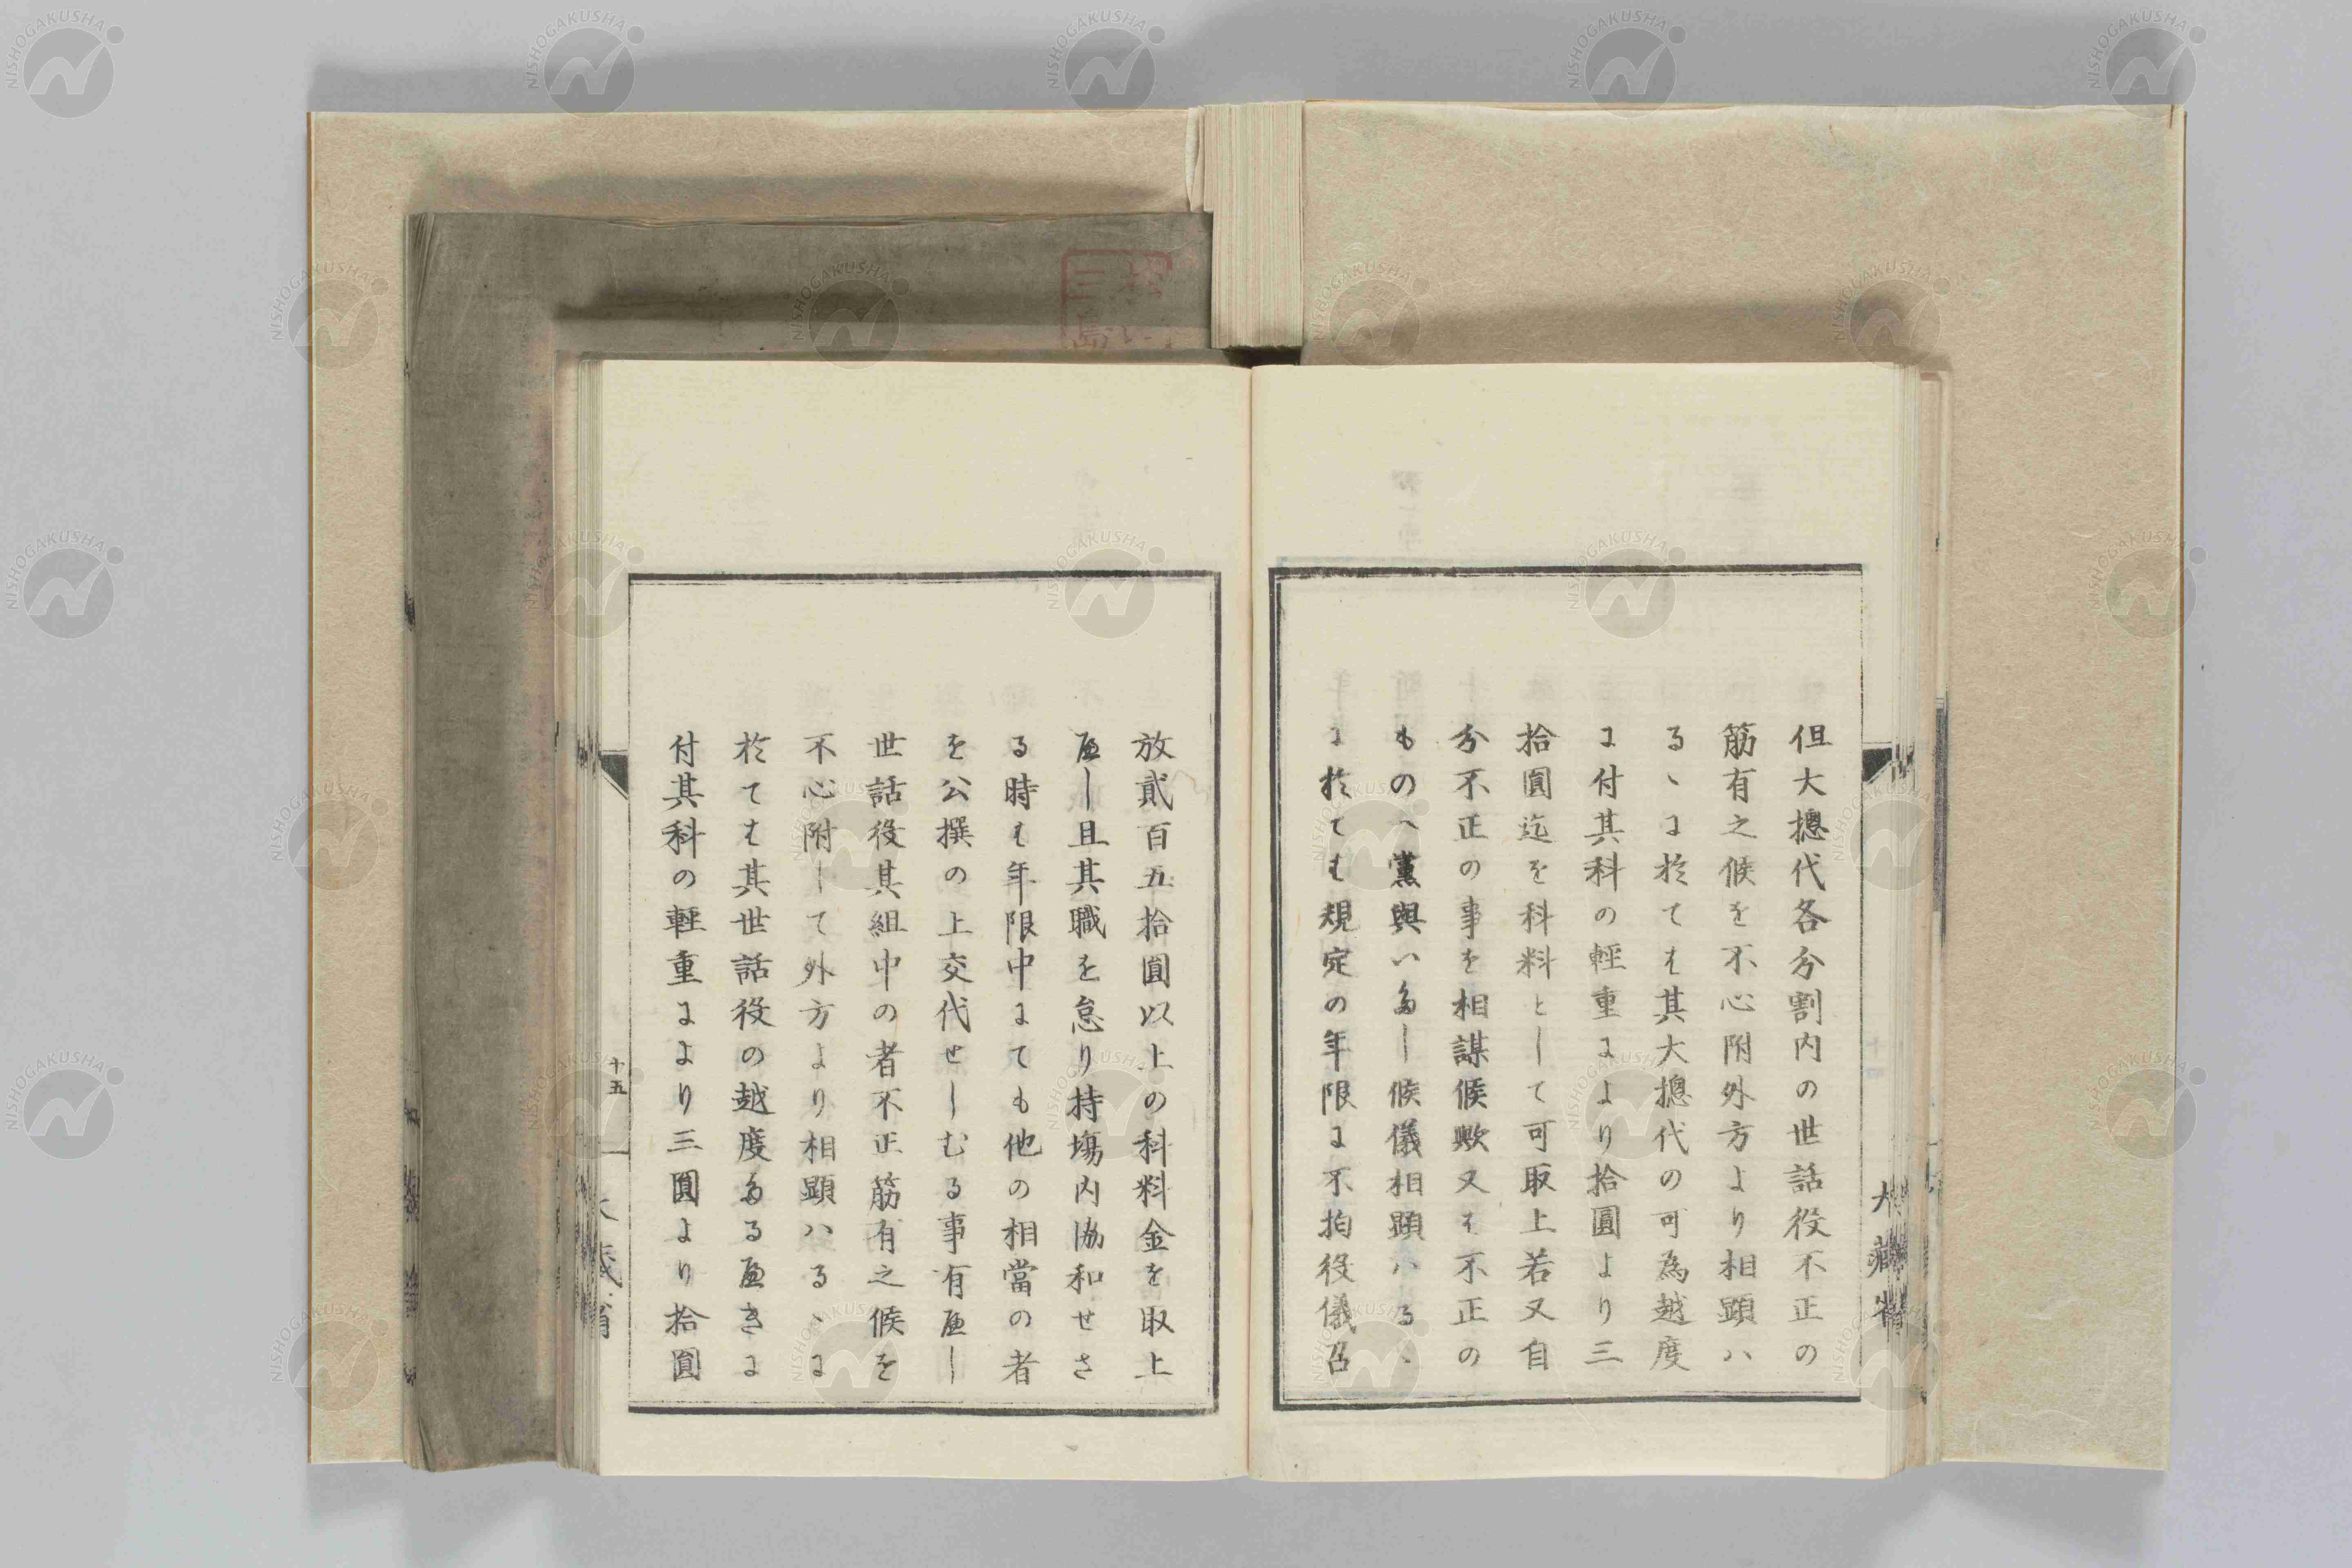 但大摠代各分割内の世話役不正の
筋有之候を不心附外方より相顕ハ
るゝに於てハ其大摠代の可為越度
に付其科の輕重により拾圓より三
拾圓迄を科料として可取上若又自
分不正の事を相謀候歟又ハ不正の
ものへ黨與いたし候儀相顕ハるゝ
に於てハ規定の年限に不拘役儀召
大藏省
放貳百五拾圓以上の科料金を取上
へし且其職を怠り持塲内協和せさ
る時ハ年限中にても他の相當の者
を公撰の上交代せしむる事有へし
世話役其組中の者不正筋有之候を
不心附して外方より相顕ハるゝに
於てハ其世話役の越度たるへきに
付其科の輕重により三圓より拾圓
十五
NISHOGAKUSHA